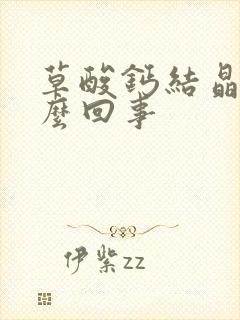 草酸鈣結晶
麼回事
伊紫zz